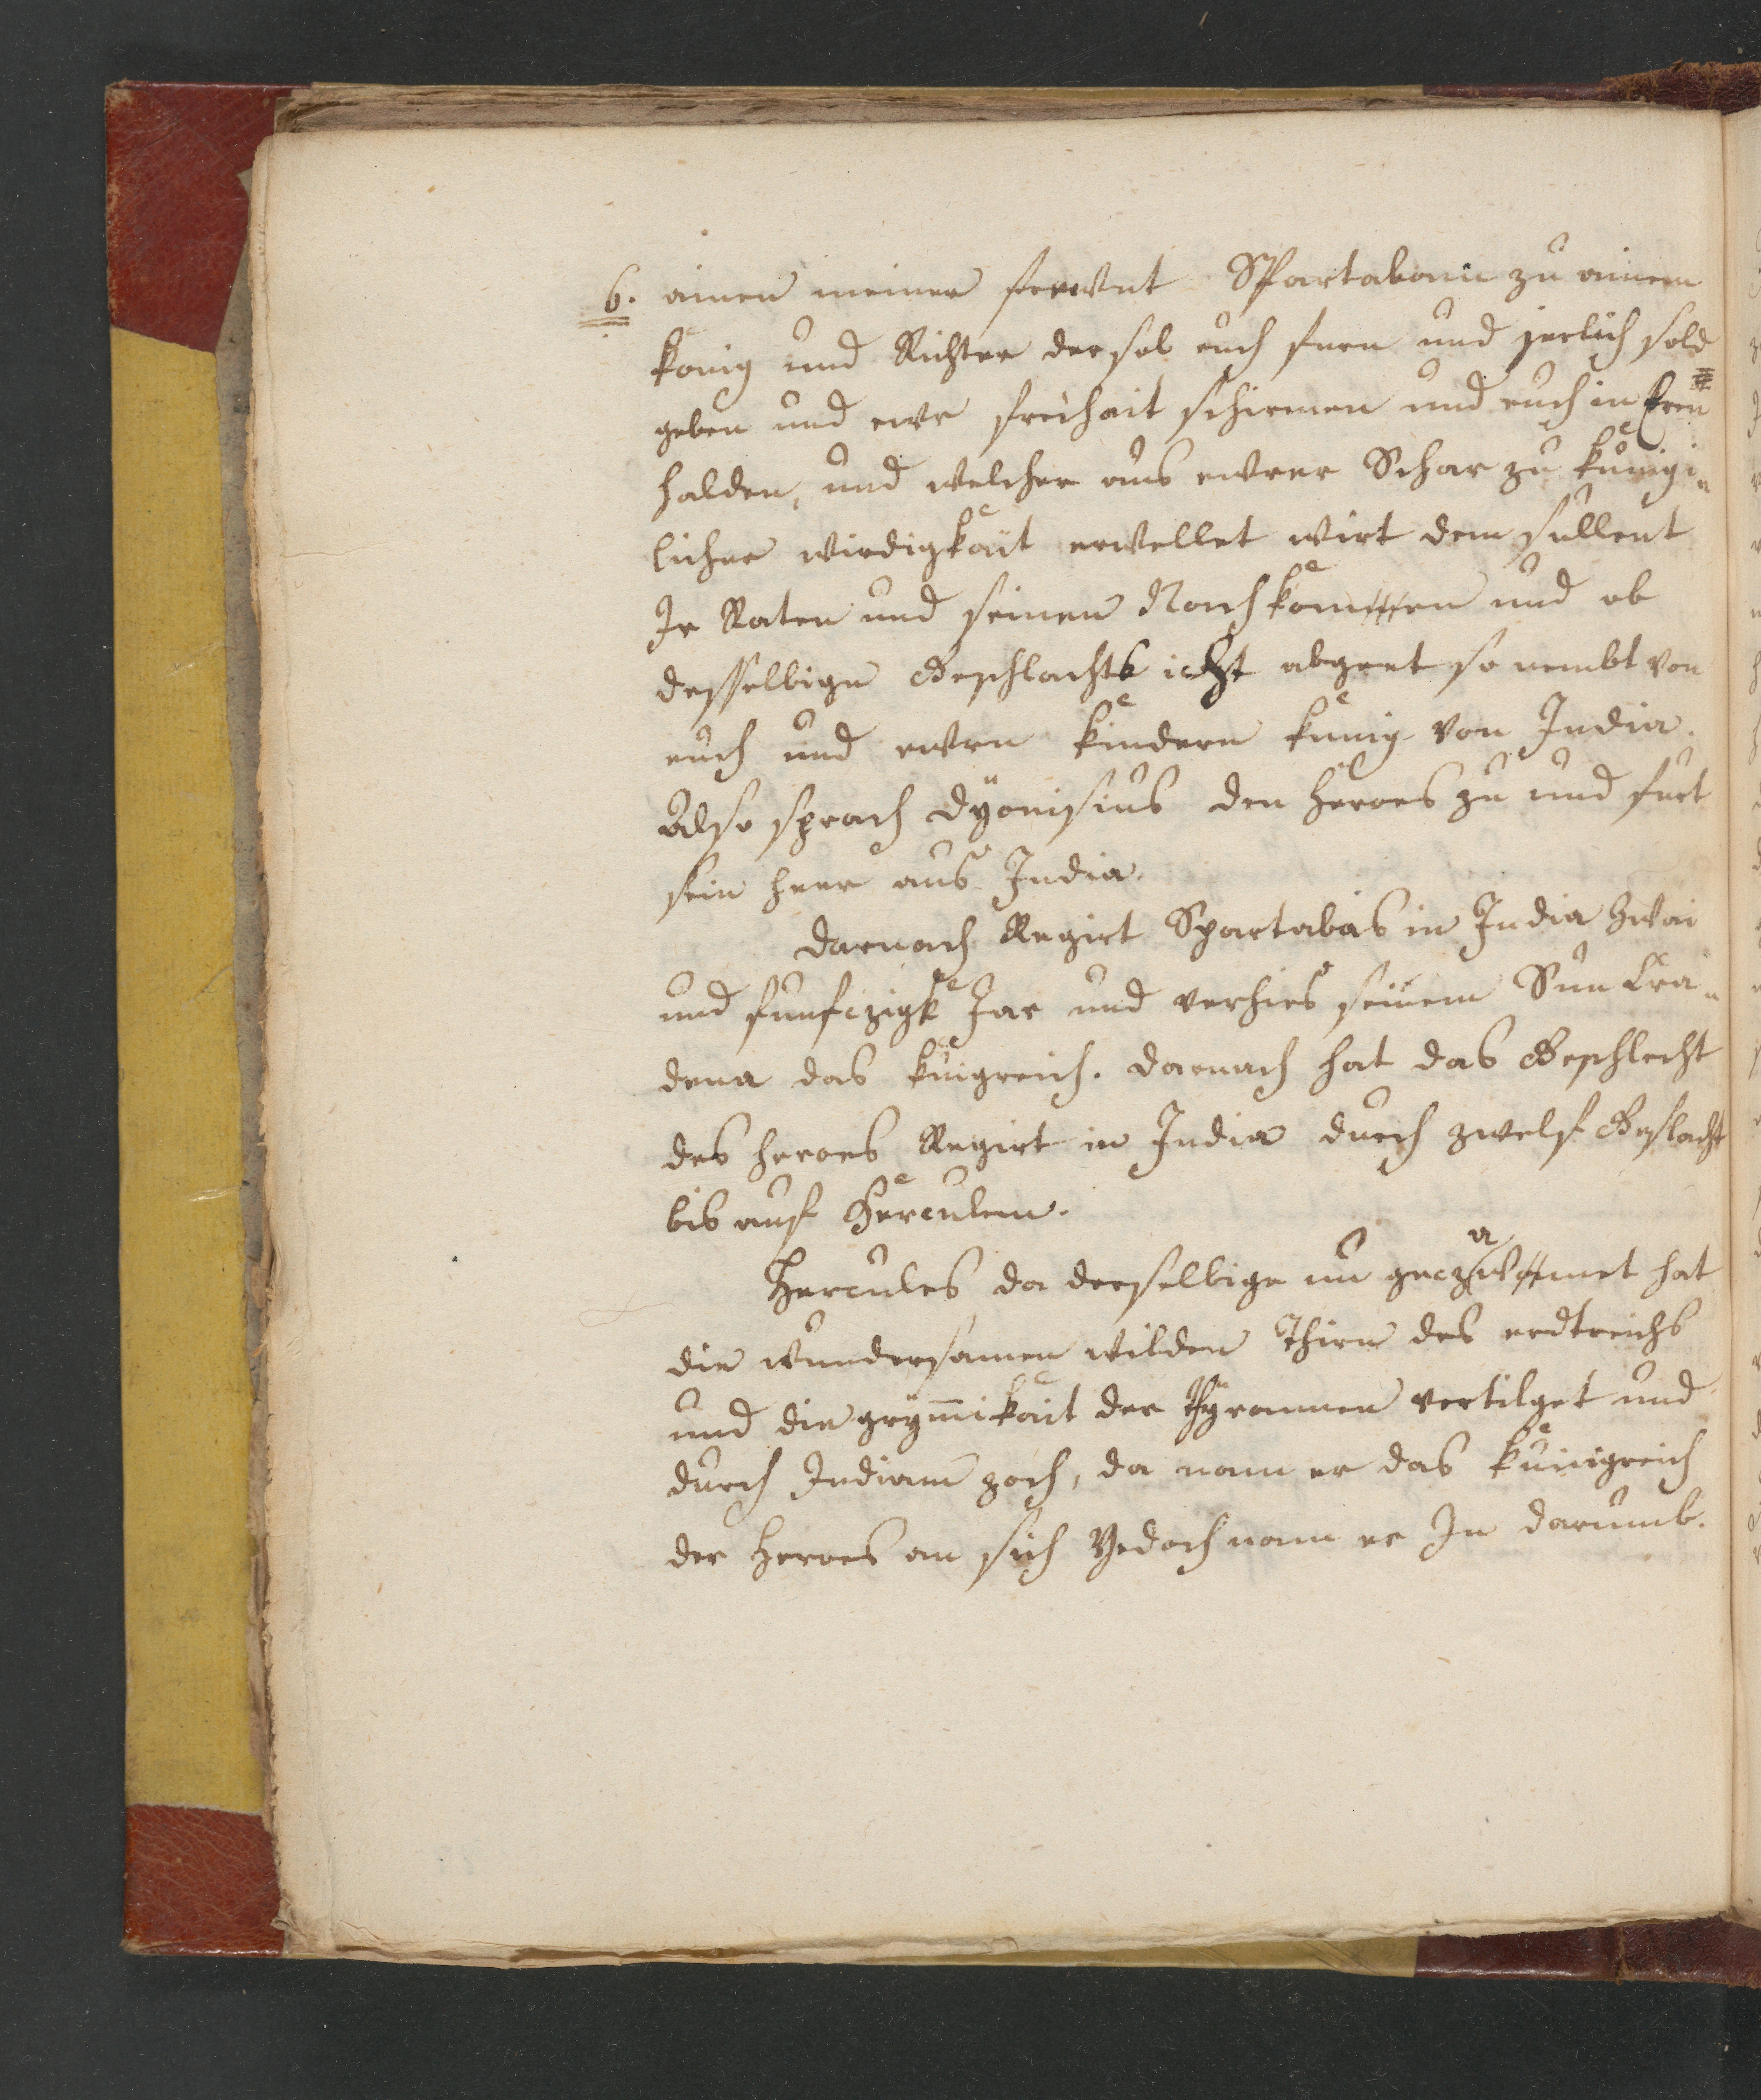 6. ainen meiner frewnt Spartabam zu ainem
könig und Richter der sol euch furn und jerlich sold
geben und ewr freihait schirmen und euch in Ern
halden, und welcher aus ewrer Schar zu kůnig-
licher wirdigkait erwellet wirt dem sullent
Ir Raten und seinen Nachkomen und ob
desselbigen Geschlachts icht abgeet so nembt von
euch und ewrn kindern kunig von India.
Also sprach dÿonisius den heroes zu und furt
sein heer aus India.
Darnach Regirt Spartabas in India zwai
und funfczigk Jar und verhies seinem Sun Cra-
dena das kungreich. darnach hat das Geschlecht
des heroes Regirt in India durch zwelf Geslacht
bis auf Herculem.
Hercules da derselbige nu geczamet hat
die wundersamen wilden Thirn des erdtreichs
und die grym̅ikait der Thyrannen vertilget und
durch Indiam zoch, da nam er das kunigreich
der Heroes an sich Yedoch nam er In darumb.